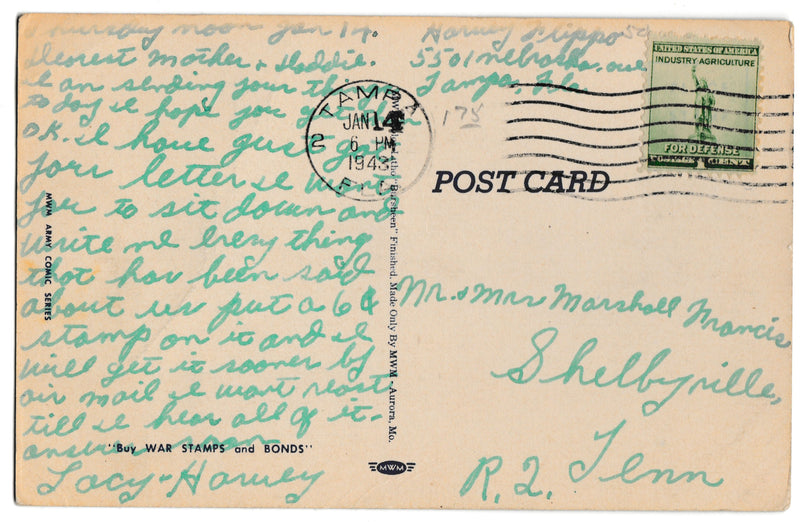 Thursday noon Jan 14.
Dearest Mother + Daddie.
I am sending your this
to day I hope you
O.K. I have gust got
your letter I want
you to sit down an
write me every thing
that hav been said
about us put a 6¢
stamp on it and I
will get it sooner by
air mail I wont reast
till I hear all of it.
answer soon
Lacy + Harvey
"Buy WAR STAMPS and BONDS"
MWM ARMY COMIC SERIES
"Barsheen" Finished, Made Only By MWM - Aurora, Mo.
MWM
Harvey Flippo
5501 Nebraska. ave
Tampa, Fla.
175
TAMPA
JAN 14
6 PM
1943
2
FLA
UNITED STATES OF AMERICA
INDUSTRY AGRICULTURE
FOR DEFENSE
CENT
POST CARD
Mr. + Mrs Marshall Francis
Shelbyville,
R. 2. Tenn